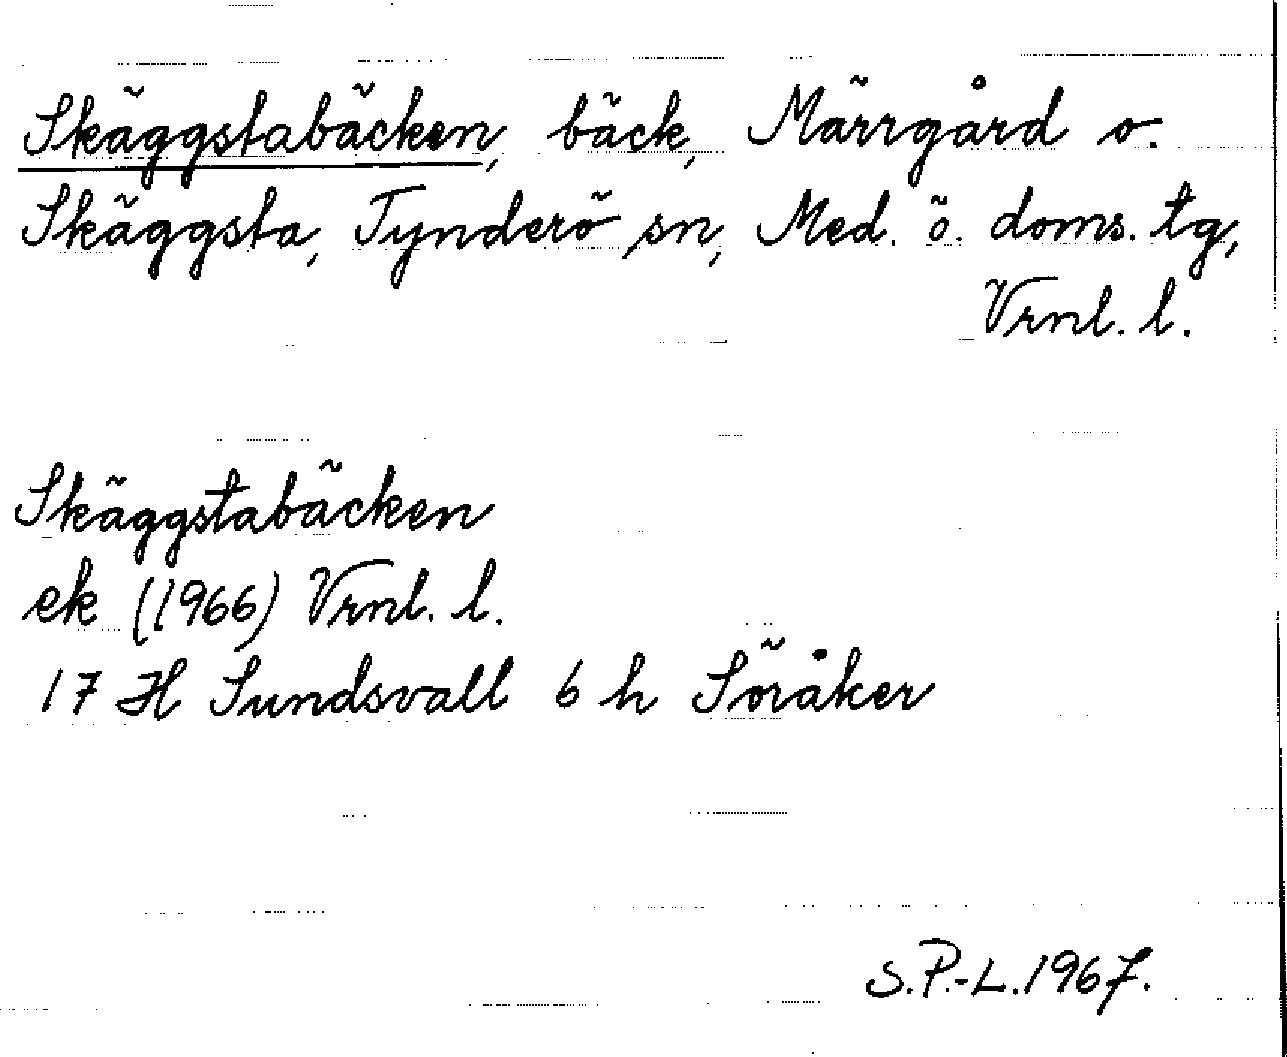 Skäggstabäcken, bäck, Märrgård o.
Skäggsta, Tynderö sn, Med. ö. doms. tg,
Vrnl. l.
Skäggstabäcken
ek (1966) Vrnl. l.
17 H Sundsvall 6 h Söråker
S.P.-L. 1967.